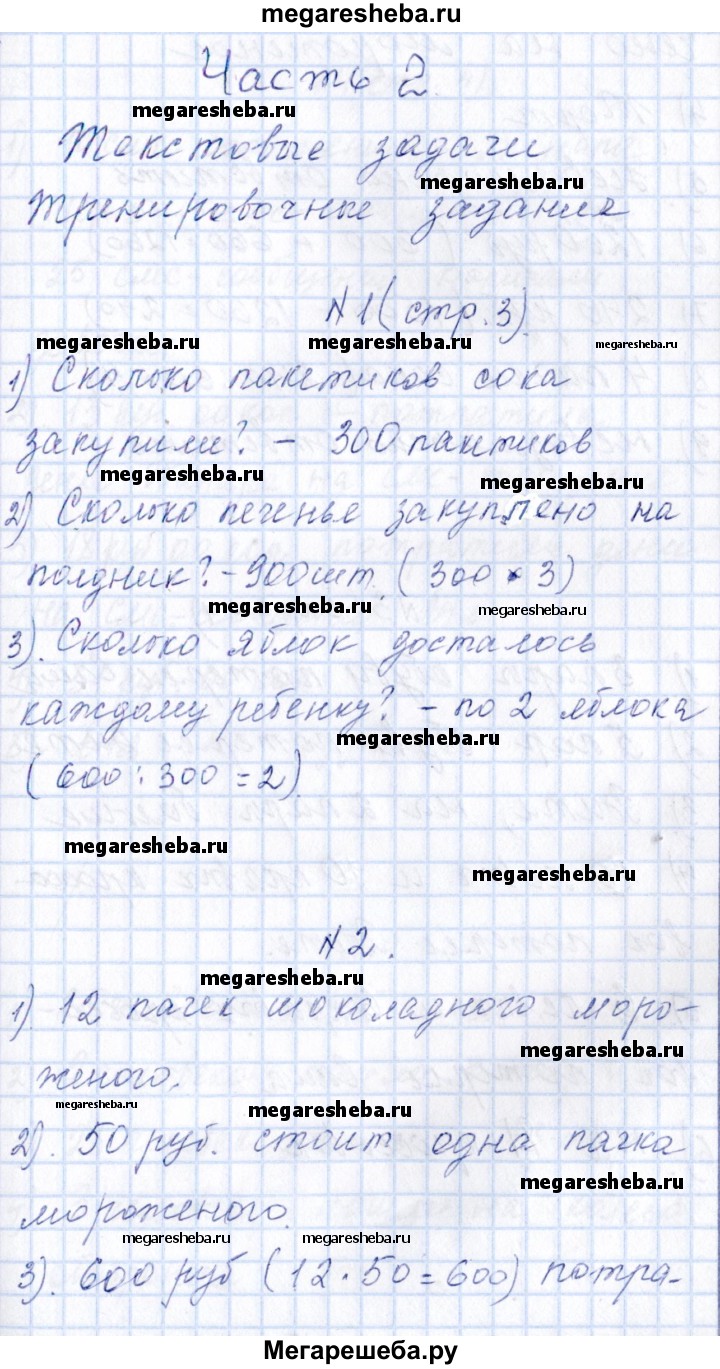 megaresheba.ru
Часть 2.
megaresheba.ru
Текстовые задачи
megaresheba.ru
тренировочные задания
№1 (стр. 3).
megaresheba.ru megaresheba.ru megaresheba.ru
1) Сколько пакетиков сока
закупили? – 300 пакетиков
megaresheba.ru megaresheba.ru
2) Сколько печенье закуплено на
полдник? – 900 шт. (300 • 3)
megaresheba.ru megaresheba.ru
3). Сколько яблок досталось
каждому ребенку? – по 2 яблока
megaresheba.ru
(600 : 300 = 2)
megaresheba.ru
megaresheba.ru
№2.
megaresheba.ru
1). 12 пачек шоколадного моро-
megaresheba.ru
женого.
megaresheba.ru megaresheba.ru
2). 50 руб. стоит одна пачка
megaresheba.ru
мороженого.
megaresheba.ru megaresheba.ru
3). 600 руб (12 • 50 = 600) потра-
Мегарешеба.ру